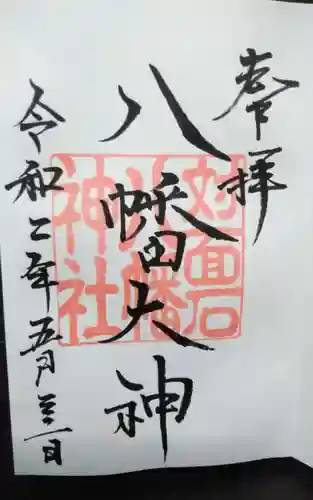 奉拝
八幡大神
対面石
八幡
神社
令和二年五月三日